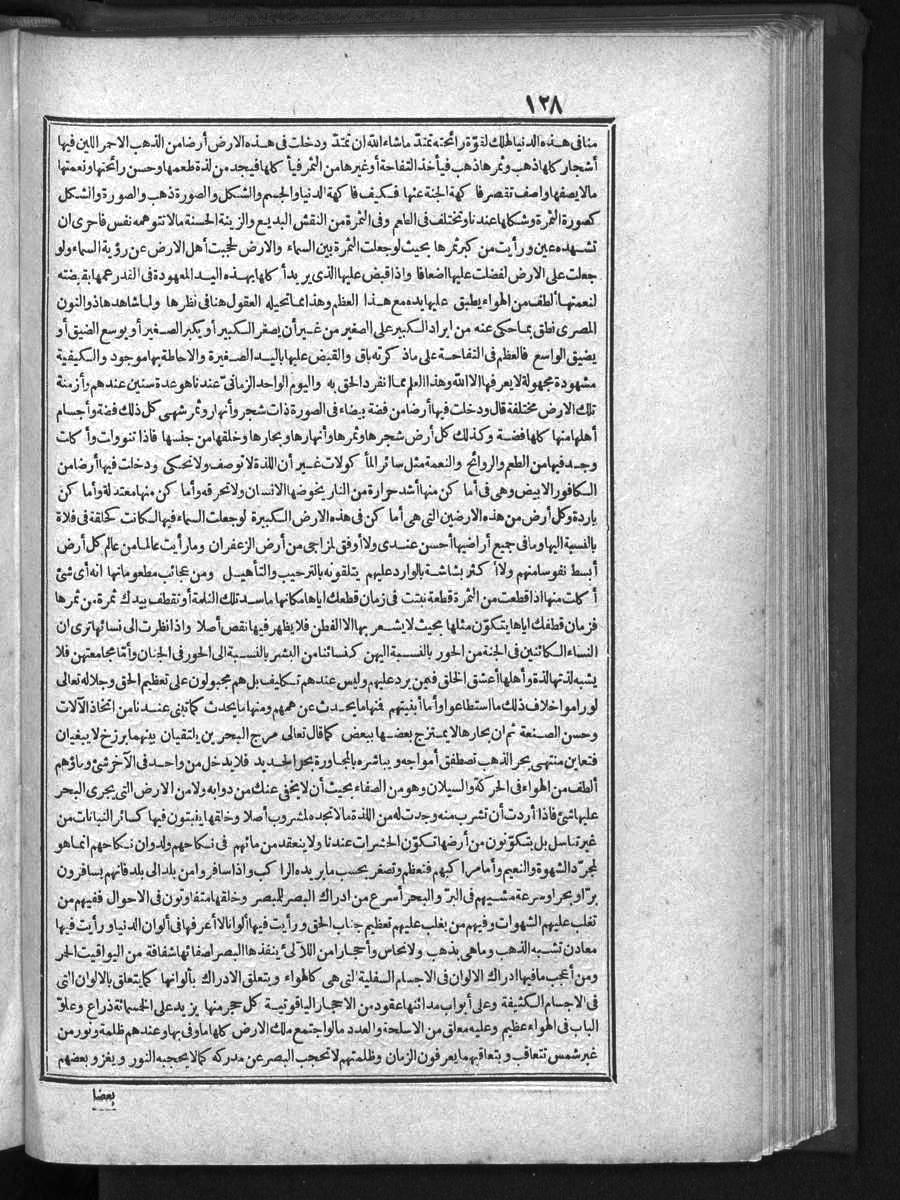 ١٢٨
منا فى هذه الدنيا لهلك لقوّة رائحته تمتدّ ماشاء الله ان تمتدّ ودخلت فى هذه الارض أرضا من الذهب الاحمر اللين فيها
أشجار كلها ذهب وثمرها ذهب فيأخذ التفاحة أو غيرها من الثمر فيأ كلها فيجد من لذة طعمها وحسن رائحتها ونعمتها
مالا يصفها واصف تقصر فا كهة الجنة عنها فكيف فا كهة الدنيا والجسم والشكل والصورة ذهب والصورة والشكل
كصورة الثمرة وشكلها عندنا وتختلف فى الطعم وفى الثمرة من النقش البديع والزينة الحسنة مالا تتوهمه نفس فاحرى ان
تشهده عين ورأيت من كبر ثمرها بحيث لو جعلت الثمرة بين السماء والارض لحجبت أهل الارض عن رؤية السماء ولو
جعلت على الارض لفضلت عليها اضعافا واذا قبض عليها الذى يريد أ كلها بهذه اليد المعهودة فى القدر عمها بقبضته
لنعمتها ألطف من الهواء يطبق عليها يده مع هذا العظم وهذا مما تحيله العقول هنا فى نظرها ولما شاهدها ذوالنون
المصرى نطق بما حكى عنه من ايراد الكبير على الصغير من غير أن يصغر الكبير أو يكبر الصغير أو يوسع الضيق أو
يضيق الواسع فالعظم فى التفاحة على ماذ كرته باق والقبض عليها باليد الصغيرة والاحاطة بها موجود والكيفية
مشهودة مجهولة لا يعرفها الا الله وهذا العلم مما انفرد الحق به واليوم الواحد الزمانىّ عندنا هو عدة سنين عندهم وأزمنة
تلك الارض مختلفة قال ودخلت فيها أرضا من فضة بيضاء فى الصورة ذات شجر وأنهار وثمر شهى كل ذلك فضة وأجسام
أهلها منها كلها فضة وكذلك كل أرض شجرها وثمرها وأنهارها وبحارها وخلقها من جنسها فاذا تنوولت وأ كلت
وجد فيها من الطعم والروائح والنعمة مثل سائر المأ كولات غير أن اللذة لا توصف ولا تحكى ودخلت فيها أرضا من
الكافور الابيض وهى فى أما كن منها أشد حرارة من النار يخوضها الانسان ولا تحرقه وأما كن منها معتدلة وأما كن
باردة وكل أرض من هذه الارضين التى هى أما كن فى هذه الارض الكبيرة لو جعلت السماء فيها لكانت كحلقة فى فلاة
بالنسبة اليها وما فى جميع أراضيها أحسن عندى ولا أوفق لمزاجى من أرض الزعفران وما رأيت عالما من عالم كل أرض
أبسط نفوسا منهم ولا أ كثر بشاشة بالوارد عليهم يتلقونه بالترحيب والتأهيل ومن عجائب مطعوماتها انه أى شئ
أ كلت منها اذا قطعت من الثمرة قطعة نبتت فى زمان قطعك اياها مكانها ماسد تلك الثلمة أو تقطف بيدك ثمرة من ثمرها
فزمان قطفك اياها يتكوّن مثلها بحيث لا يشعر بها الا الفطن فلا يظهر فيها نقص أصلا واذا نظرت الى نسائها ترى ان
النساء الكائنين فى الجنة من الحور بالنسبة اليهن كنسائنا من البشر بالنسبة الى الحور فى الجنان وأما مجامعتهن فلا
يشبه لذتها لذة وأهلها أعشق الخلق فيمن يرد عليهم وليس عندهم تكليف بل هم مجبولون على تعظيم الحق وجلاله تعالى
لو راموا خلاف ذلك ما استطاعوا وأما أبنيتهم فنها ما يحدث عن هممهم ومنها ما يحدث كما تبنى عندنا من اتخاذ الآلات
وحسن الصنعة ثم ان بحارها لا يمتزج بعضها ببعض كما قال تعالى مرج البحرين يلتقيان بينهما برزخ لا يبغيان
فتعاين منتهى بحر الذهب تصطفق أمواجه ويباشره بالمجاورة بحر الحديد فلا يدخل من واحد فى الآخر شئ وماؤهم
ألطف من الهواء فى الحركة والسيلان وهو من الصفاء بحيث أن لا يخفى عنك من دوابه ولا من الارض التى يجرى البحر
عليها شئ فاذا أردت أن تشرب منه وجدت له من اللذة مالا تجده لمشروب أصلا وخلقها ينبتون فيها كسائر النباتات من
غير تناسل بل يتكوّنون من أرضها تكوّن الحشرات عندنا ولا ينعقد من مائهم فى نكاحهم ولد وان نكاحهم انما هو
لمجرّد الشهوة والنعيم وأما مراكبهم فتعظم وتصغر بحسب ما يريده الراكب واذا سافروا من بلد الى بلد فانهم يسافرون
برّا وبحرا وسرعة مشيهم فى البرّ والبحر أسرع من ادراك البصر للمبصر وخلقها متفاوتون فى الاحوال ففيهم من
تغلب عليهم الشهوات وفيهم من يغلب عليهم تعظيم جناب الحق ورأيت فيها ألوانا لا أعرفها فى ألوان الدنيا ورأيت فيها
معادن تشبه الذهب وما هى بذهب ولا نحاس وأحجارا من اللآلئ ينفذها البصر لصفائها شفافة من اليواقيت الحمر
ومن أعجب ما فيها ادراك الالوان فى الاجسام السفلية التى هى كالهواء ويتعلق الادراك بألوانها كما يتعلق بالالوان التى
فى الاجسام الكثيفة وعلى أبواب مدائنها عقود من الاحجار الياقوتية كل حجر منها يزيد على الخسمائة ذراع وعلوّ
الباب فى الهواء عظيم وعليه معلق من الاسلحة والعدد مالو اجتمع ملك الارض كلها ما وفى بها وعندهم ظلمة ونور من
غير شمس تتعاقب وبتعاقبهما يعرفون الزمان وظلمتهم لا تحجب البصر عن مدركه كما لا يحجبه النور ويغزو بعضهم
بعضا